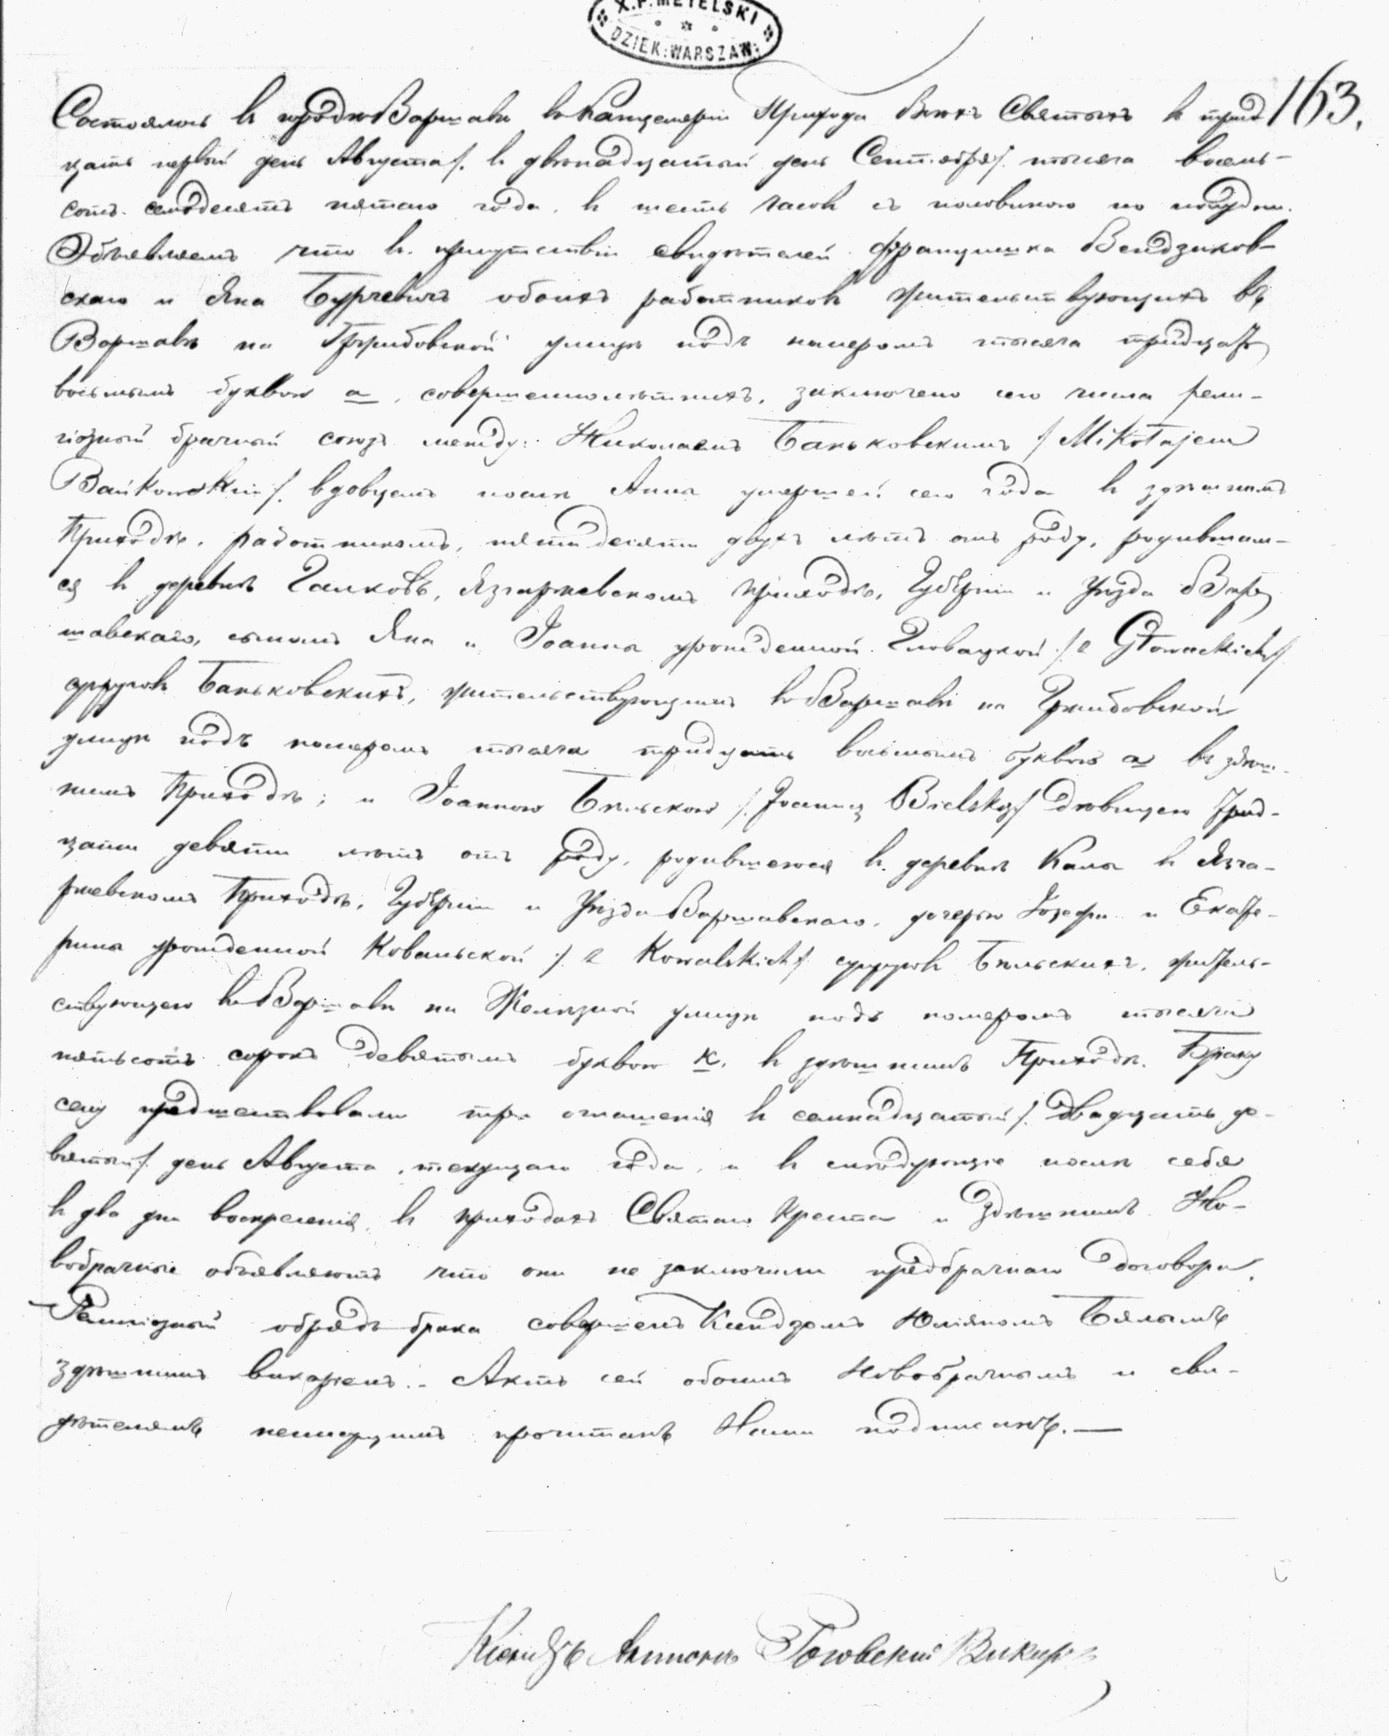 X.P. METELSKI
DZIEK: WARSZAW:
163.
Состоялось въ городѣ Варшавѣ въ Канцеляріи Прихода Всѣхъ Святыхъ въ трид
цать первый день Августа /: въ двѣнадцатый день Сентября /: тысяча восемь-
сотъ семдесятъ пятаго года, въ шесть часовъ съ половиною по полудни.
Объявляемъ что въ присутствіи свидѣтелей Францишка Вендзиков-
скаго и Яна Бурчевичъ обоихъ работниковъ жительствующихъ въ
Варшавѣ на Гржибовской улицѣ подъ номеромъ тысяча тридцать
восьмымъ буквою а, совершеннолѣтнихъ, заключено сего числа рели-
гіозный брачный союзъ между: Николаемъ Баньковскимъ / Mikołajem
Bańkowskim /. вдовцемъ послѣ Анны умершей сего года въ здѣшнемъ
Приходѣ, работникомъ, пятидесяти двухъ лѣтъ отъ роду, родившим-
ся въ деревнѣ Галковъ, Язгаржевскомъ приходѣ, Губерніи и Уѣзда Вар
шавскаго, сыномъ Яна и Іоанны урожденной Гловацкой /: z Głowackich /
супруговъ Баньковскихъ, жительствующимъ въ Варшавѣ на Гржибовской
улицѣ подъ номеромъ тысяча тридцать восьмымъ буквою а въ здѣш-
немъ Приходѣ; и Іоанною Бѣльскою /: Joanną Bielską / дѣвицею трид-
цати девяти лѣтъ отъ роду, родившеюся въ деревнѣ Калы въ Язга-
ржевскомъ Приходѣ, Губерніи и Уѣзда Варшавскаго, дочерью Іозефа и Екате-
рины урожденной Ковальской /: z Kowalskich / супруговъ Бѣльскихъ, житель-
ствующею въ Варшавѣ на Желѣзной улицѣ подъ номеромъ тысяча
пятьсотъ сорокъ девятымъ буквою к. въ здѣшнемъ Приходѣ. Браку
сему предшествовали три оглашенія въ семнадцатый /: двадцать де-
вятый /: день Августа, текущаго года, и въ слѣдующіе послѣ себя
въ два дни воскресенія, въ приходахъ Святаго Креста и здѣшнимъ. Но-
вобрачные объявляютъ что они не заключили предбрачнаго договора.
Религіозный обрядъ брака совершенъ Ксендзомъ Юліяномъ Бялымъ
здѣшнимъ викаремъ. - Актъ сей обоимъ Новобрачнымъ и сви-
дѣтелямъ неписущимъ прочитанъ Нами подписанъ. —
Ксендзъ Викарі